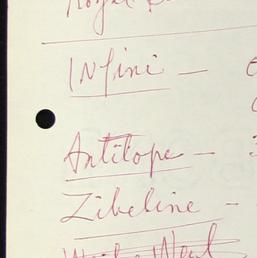 Royal
INfini —
Antilope —
Zibeline -